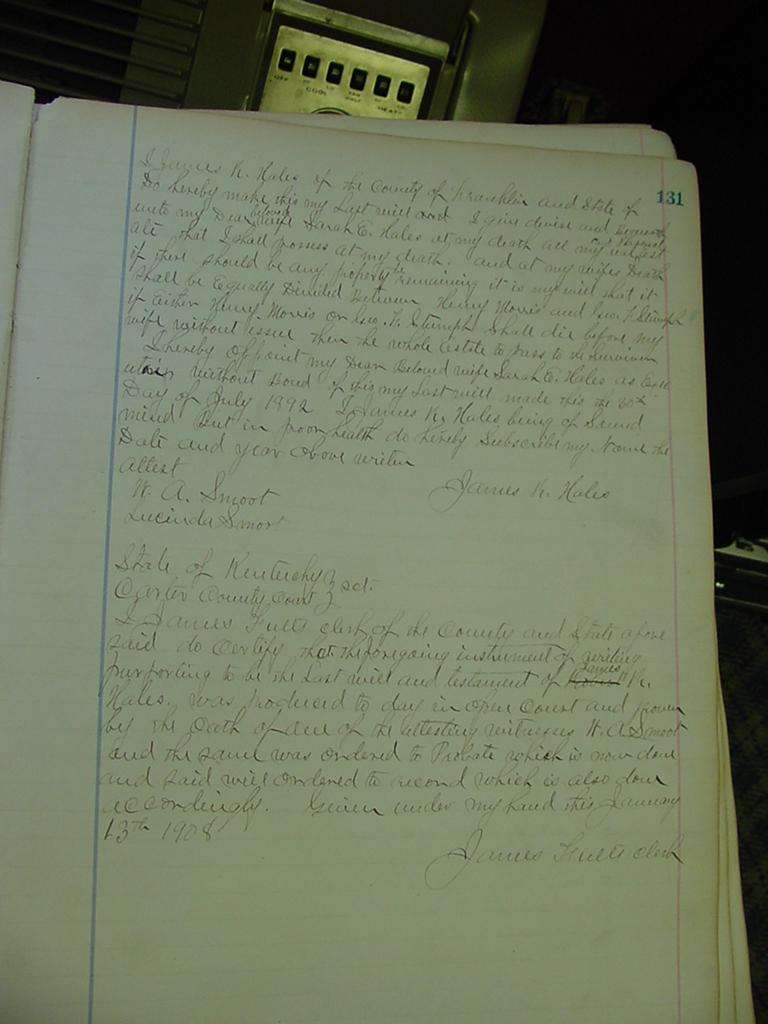 OFF
COOL
FAN ONLY
HEAT
131
I James K. Hales of the County of Franklin and State of
Do hereby make this my Last will and I give devise and bequeath
unto my Dear beloved wife Sarah E. Hales at my death all my real & personal est
ate that I shall possess at my death. and at my wifes Death
if there should be any property remaining it is my will that it
shall be Equally Divided Between Henry Morris and Geo. F. Stumph
if Either Henry Morris or Geo. F. Stumph shall die before my
wife without issue then the whole Estate to pass to the surviver
I hereby appoint my Dear Beloved wife Sarah E. Hales as Exec
utrix without Bond of this my Last will made this the 30th
Day of July 1892 I James K. Hales being of Sound
mind But in poor health do hereby Subscribe my Name the
Date and year above writen
attest
James K. Hales
W. A. Smoot
Lucinda Smoot
State of Kentucky } sct.
Carter County Court }
I James Fults clerk of the County and State afore
said do certify that the foregoing instrument of writing
purporting to be the Last will and testament of James K.
Hales, was produced to day in open Court and proven
by the Oath of one of the attesting witnesses W. A. Smoot
and the same was ordered to Probate which is now done
and said will ordered to record which is also done
accordingly. Given under my hand this January
13th 1908
James Fults clerk